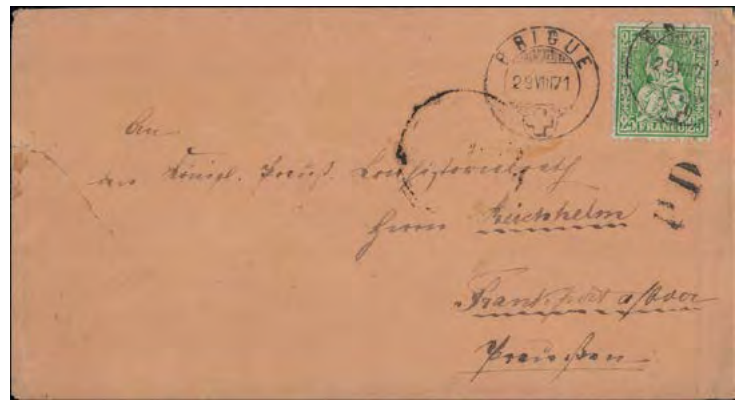 BRIGUE
29 VIII 71
25 FRANCO 25
An
den Königl. Preuß. Konsistorialrath
Herrn Reichhelm
Frankfurt a/Oder
Preußen